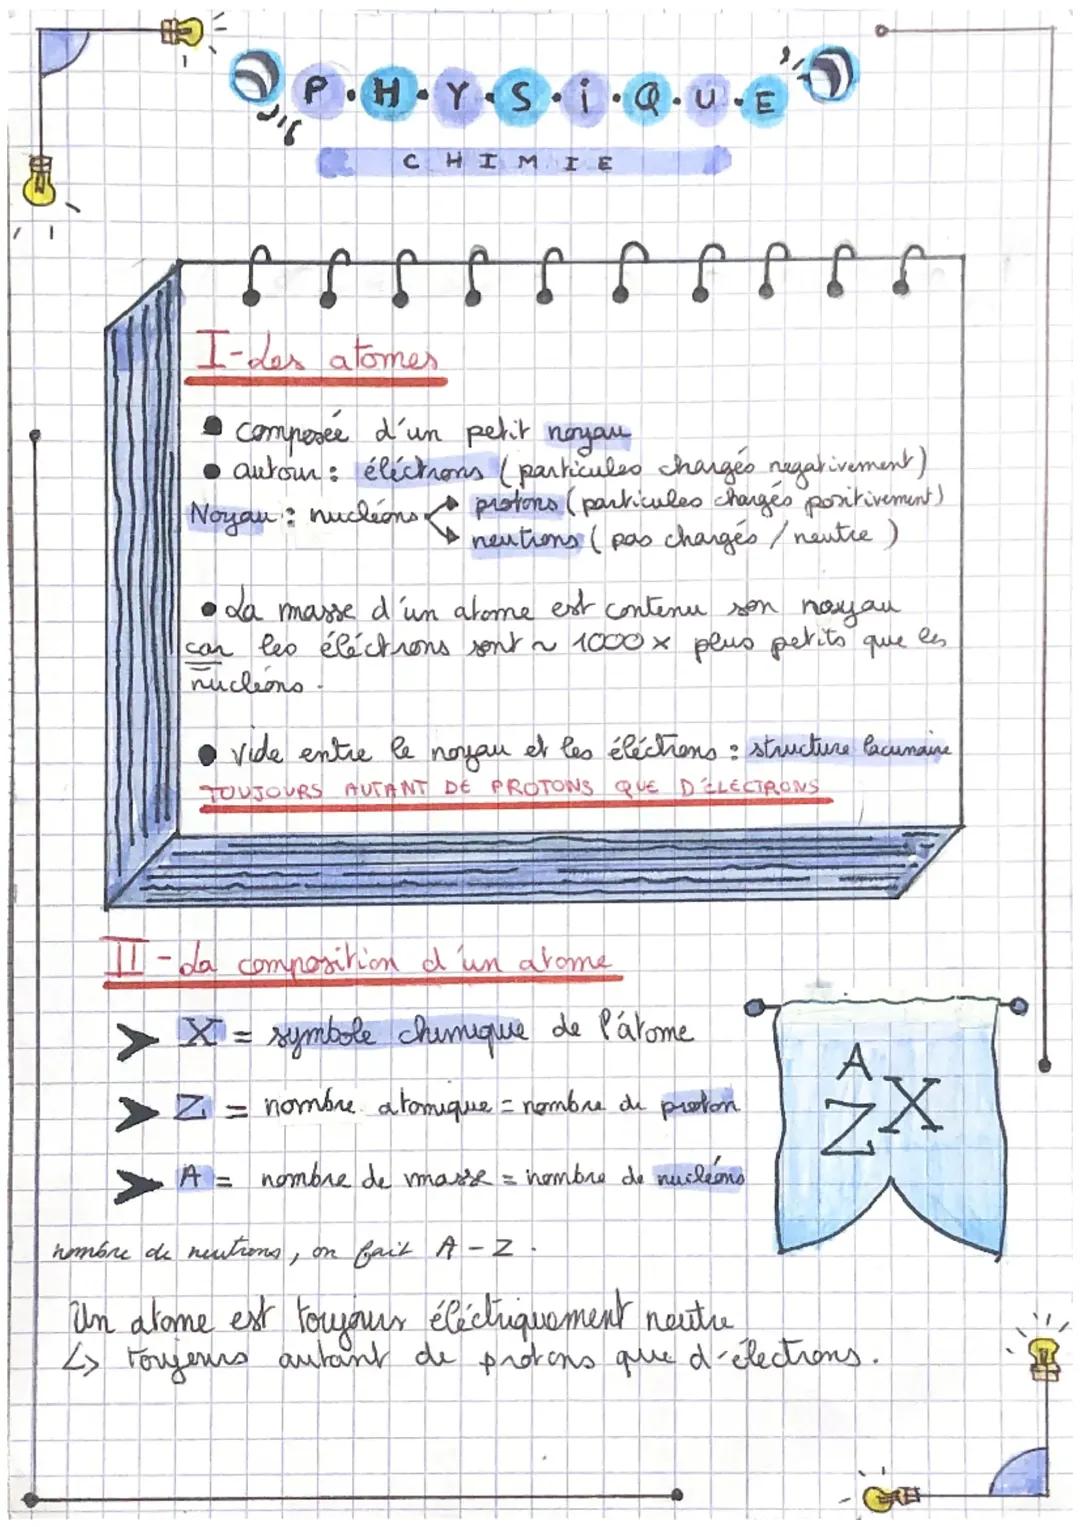 P.H.Y.S.i.Q.U.E
CHIMIE
I-Les atomes
• composée d'un petit noyau
• autour : éléctrons (particules chargés negativement)
Noyau : nucléons protons (particules chargés positivement)
neutrons (pas chargés / neutre)
• La masse d'un atome est contenu son noyau
car les éléctrons sont ~ 1000x plus petits que les
nucléons.
• Vide entre le noyau et les éléctrons : structure lacunaire
TOUJOURS AUTANT DE PROTONS QUE D'ÉLECTRONS
II-La composition d'un atome
➤ X = symbole chimique de l'atome
➤ Z = nombre atomique = nombre de proton
➤ A = nombre de masse = nombre de nucléons
A
Z X
nombre de neutrons, on fait A-Z.
Un atome est toujours éléctriquement neutre
↳ toujours autant de protons que d'électrons.